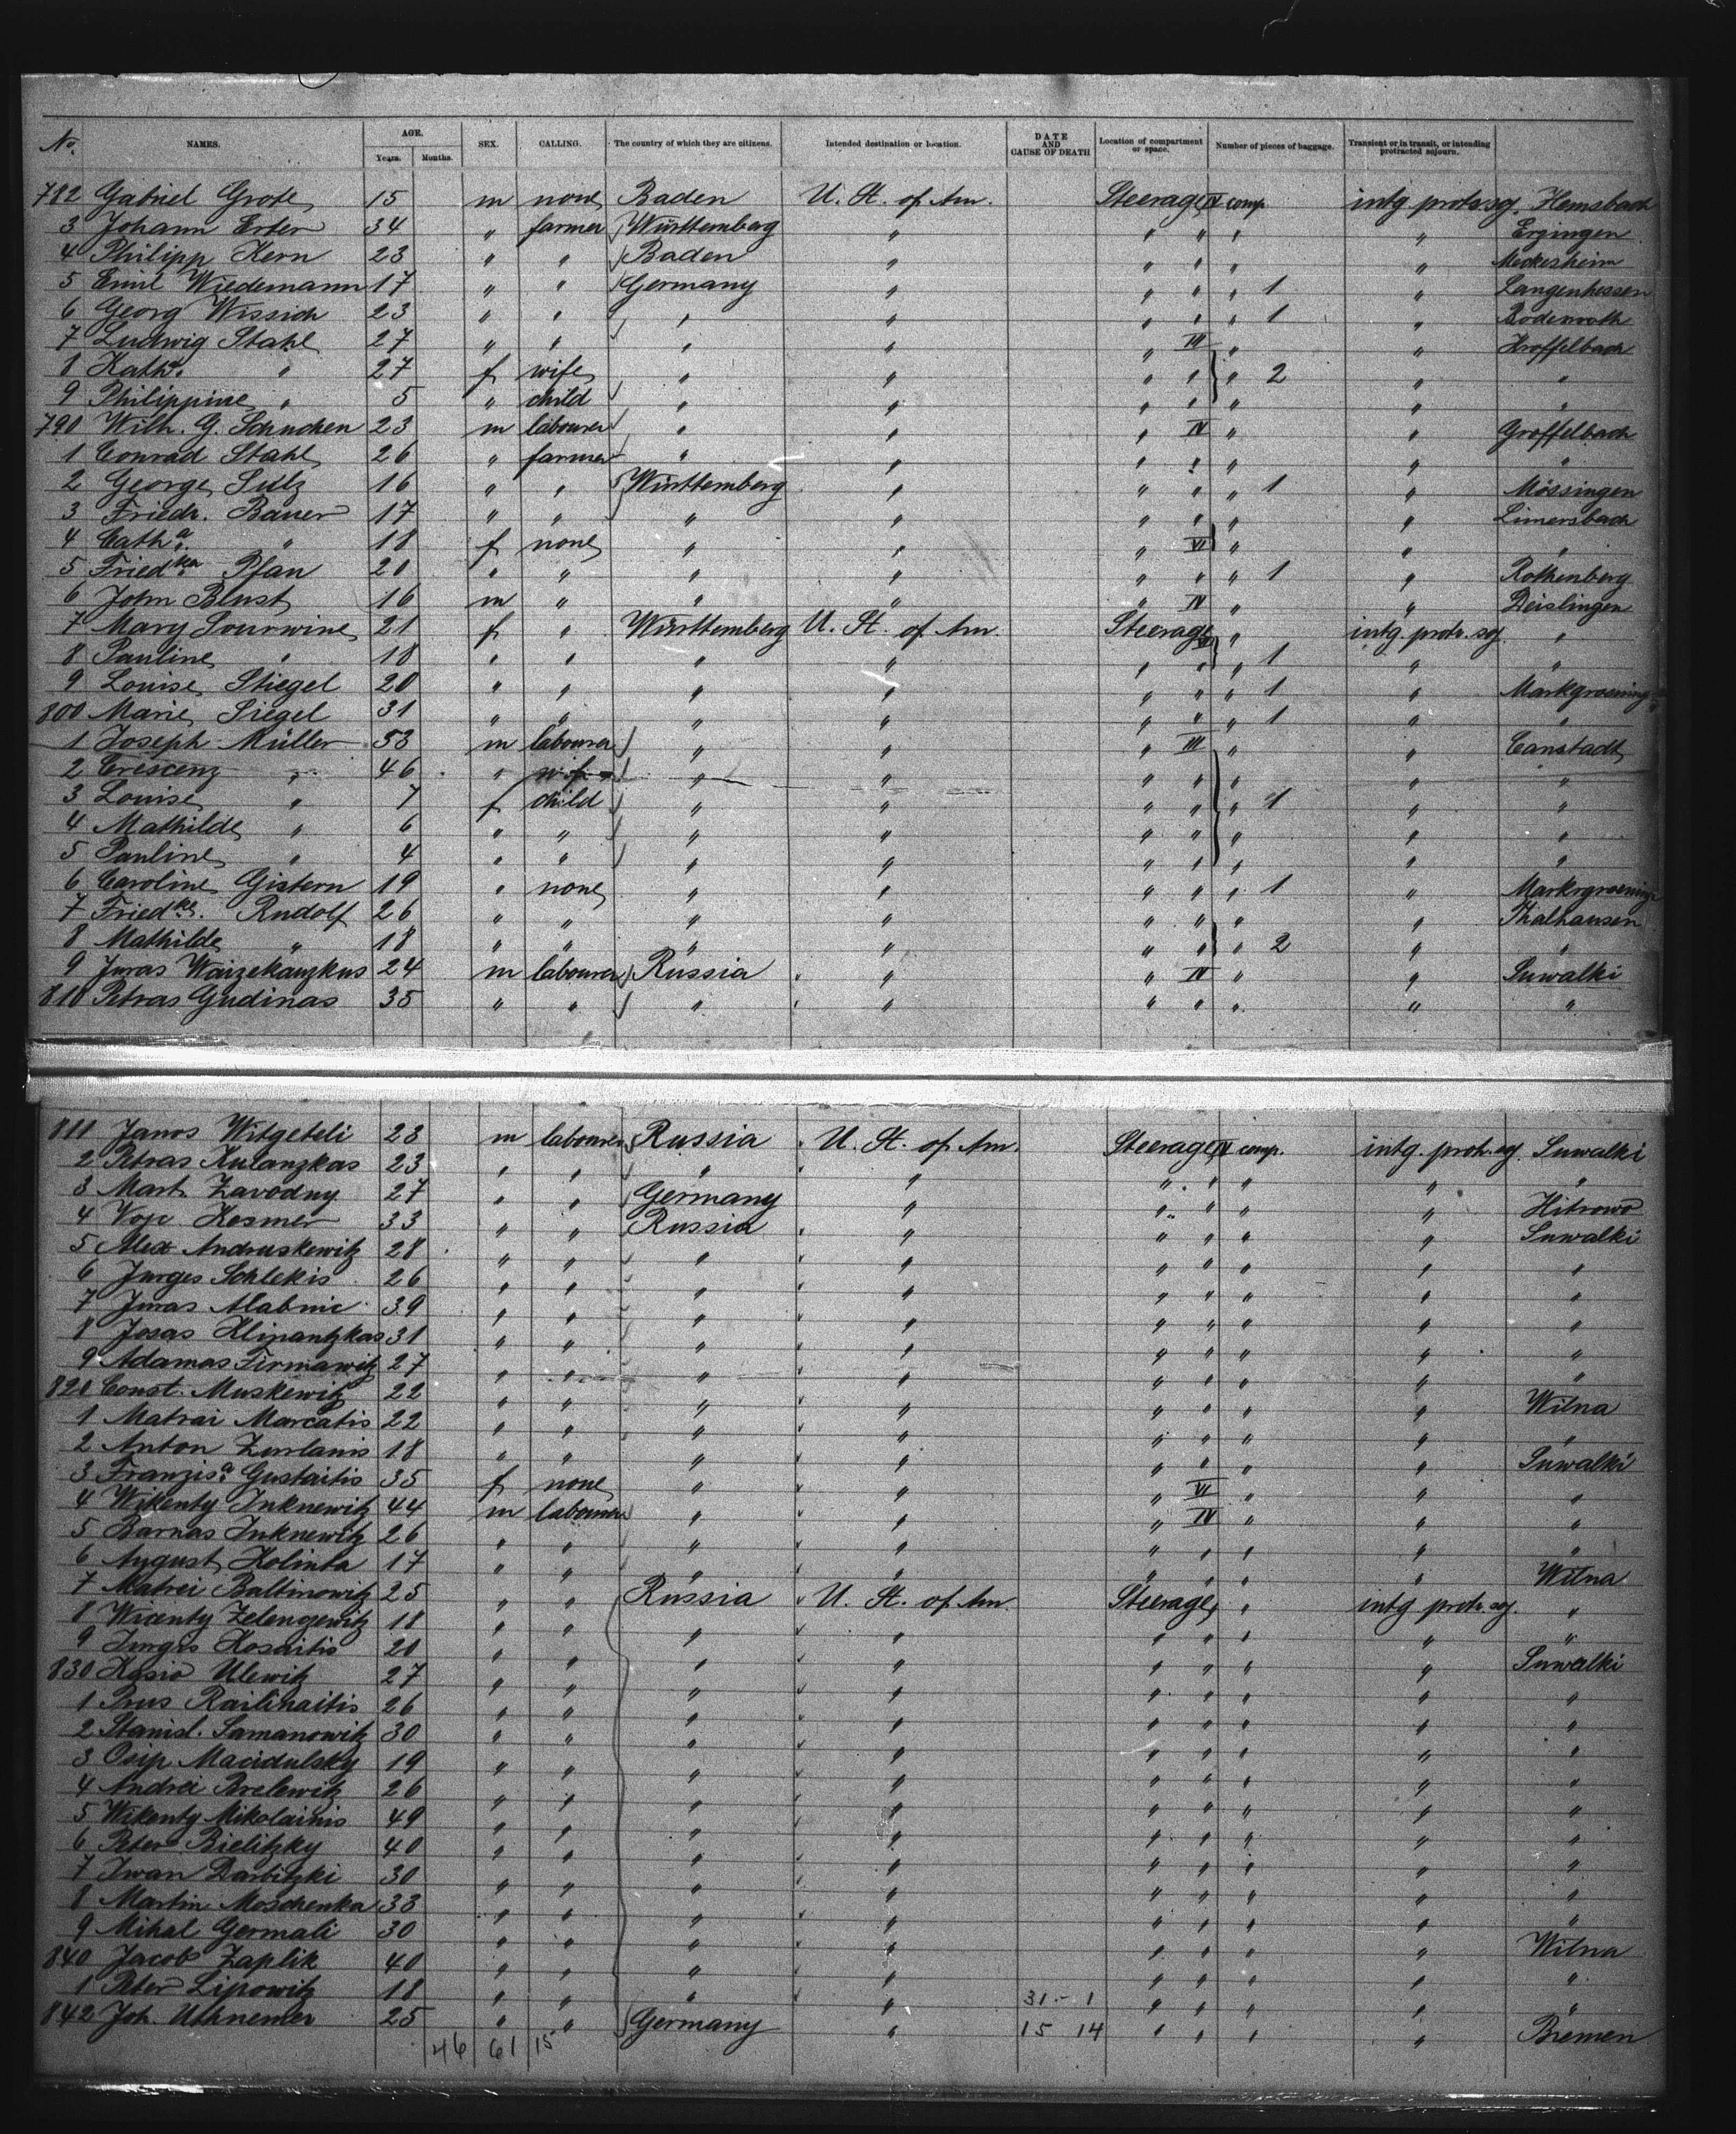 No. NAMES. AGE. Years. Months. SEX. CALLING. The country of which they are citizens. Intended destination or location. DATE AND CAUSE OF DEATH Location of compartment or space. Number of pieces of baggage. Transient or in transit, or intending protracted sojourn.
782 Gabriel Grote 15 m none Baden U. St. of Am. Steerage IV comp. intg. protr. soj. Hemsbach
3 Johann Erter 34 " farmer Württemberg " " " " " Ergingen
4 Philipp Kern 23 " " Baden " " " " " Meckesheim
5 Emil Wiedemann 17 " " Germany " " " " 1 " Langenhessen
6 Georg Wissich 23 " " " " " " " 1 " Rodenroth
7 Ludwig Stahl 27 " " " " " III " " Kroffelbach
8 Kath. " 27 f wife " " " " " 2 " "
9 Philippine " 5 " child " " " " " " "
790 Wilh. G. Schuchen 23 m labourer " " " IV " " Groffelbach
1 Conrad Stahl 26 " farmer " " " " " " "
2 George Sulz 16 " " Württemberg " " " " 1 " Mössingen
3 Friedr. Bauer 17 " " " " " " " " Limersbach
4 Catha. " 18 f none " " " VI " " "
5 Friedka. Pfau 20 " " " " " " " 1 " Rothenberg
6 John Blust 16 m " " " " IV " " Deislingen
7 Mary Sourwine 21 f " Württemberg U. St. of Am. Steerage VI " intg. protr. soj. "
8 Pauline " 18 " " " " " " " 1 " "
9 Louise Stiegel 20 " " " " " " " 1 " Markgroening
800 Marie Siegel 31 " " " " " " " 1 " "
1 Joseph Müller 53 m labourer " " " III " " Canstadt
2 Crescenz " 46 " wife " " " " " " "
3 Louise " 7 f child " " " " " 1 " "
4 Mathilde " 6 " " " " " " " " "
5 Pauline " 4 " " " " " " " " "
6 Caroline Gistern 19 " none " " " " " 1 " Markgroening
7 Friedke. Rudolf 26 " " " " " " " " Thalhausen
8 Mathilde " 18 " " " " " " " 2 " "
9 Juras Waizekauzkus 24 m labourer Russia " " IV " " Suwalki
810 Petras Gudinas 35 " " " " " " " " "
811 Janos Witgeteli 23 m labourer Russia U. St. of Am. Steerage IV comp. intg. protr. soj. Suwalki
2 Petras Kulanzkas 23 " " " " " " " " "
3 Mart. Zavodny 27 " " Germany " " " " " Hitrowo
4 Vojc Kesmer 33 " " Russia " " " " " Suwalki
5 Alex Andruskewitz 28 " " " " " " " " "
6 Jurges Schlekis 26 " " " " " " " " "
7 Juras Alabnic 39 " " " " " " " " "
8 Josas Klinantzkas 31 " " " " " " " " "
9 Adamas Firmawitz 27 " " " " " " " " "
820 Const. Muskewitz 22 " " " " " " " " Wilna
1 Matrai Marcatis 22 " " " " " " " " "
2 Anton Zurlanis 18 " " " " " " " " Suwalki
3 Franzisa. Gustaitis 35 f none " " " VI " " "
4 Wikenty Juknewitz 44 m labourer " " " IV " " "
5 Barnas Juknewitz 26 " " " " " " " " "
6 August Kolinta 17 " " " " " " " " Wilna
7 Matrei Baltinowitz 25 " " Russia U. St. of Am. Steerage " intg. protr. soj. "
8 Wicenty Zelengewitz 18 " " " " " " " " "
9 Jurgis Kosaitis 20 " " " " " " " " Suwalki
830 Kasio Ulewitz 27 " " " " " " " " "
1 Prus Railinaitis 26 " " " " " " " " "
2 Stanisl. Samanowitz 30 " " " " " " " " "
3 Osip Macidulsky 19 " " " " " " " " "
4 Andrei Brelewitz 26 " " " " " " " " "
5 Wikenty Mikolainis 49 " " " " " " " " "
6 Peter Bielitzky 40 " " " " " " " " "
7 Iwan Darbitzki 30 " " " " " " " " "
8 Martin Moschenka 33 " " " " " " " " "
9 Mihal Germali 30 " " " " " " " " Wilna
840 Jacob Zaplik 40 " " " " " " " " "
1 Peter Lipowitz 18 " " " " 31 - 1 " " " " "
842 Joh. Uthnemer 25 " " Germany " 15 14 " " " " Bremen
46 61 15